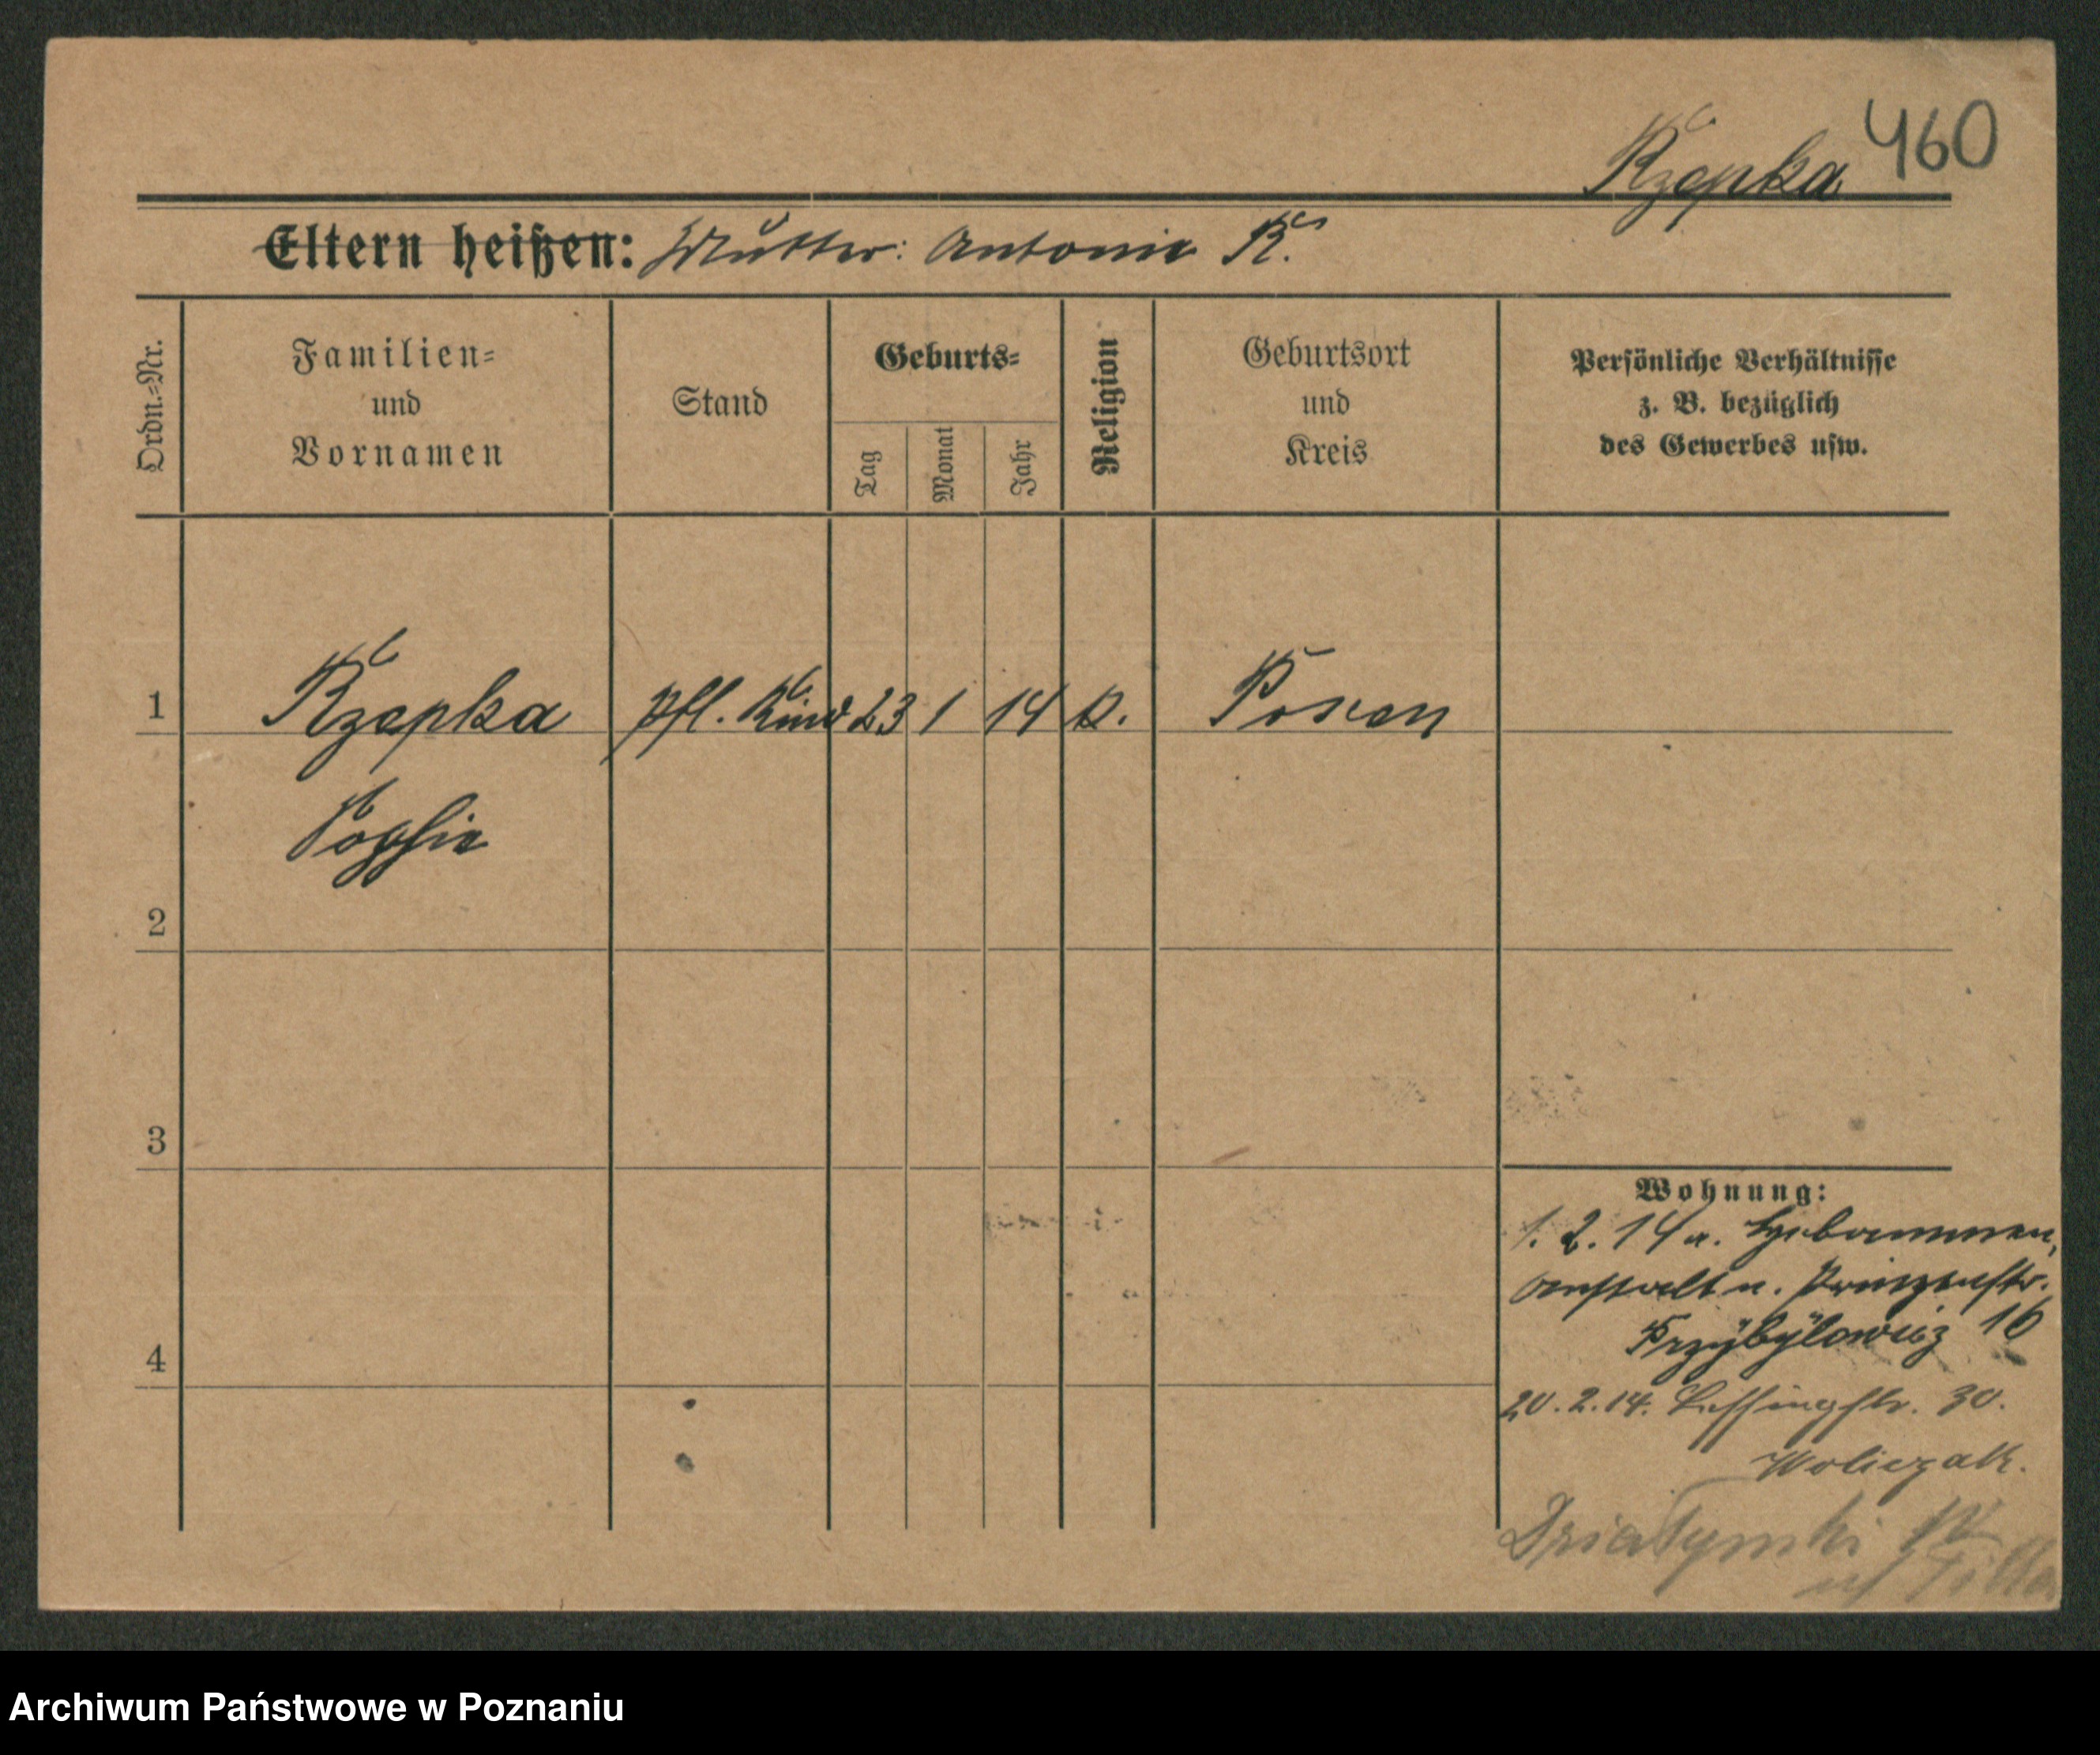 460
Rzepka
Eltern heißen: Mutter: Antonie R.
Ordn.-Nr.
Familien-
und
Vornamen
Stand
Geburts-
Tag
Monat
Jahr
Religion
Geburtsort
und
Kreis
Persönliche Verhältnisse
z. B. bezüglich
des Gewerbes usw.
1 Rzepka pfl. Kind 23 1 14 k. Posen
Sophie
2
3
4
Wohnung:
1. 2. 14 a. Hebammen,
anstalt n. Prinzenstr.
Przybylowicz 16
20. 2. 14. Lessingstr. 30.
Woliczak.
Działynski
Archiwum Państwowe w Poznaniu